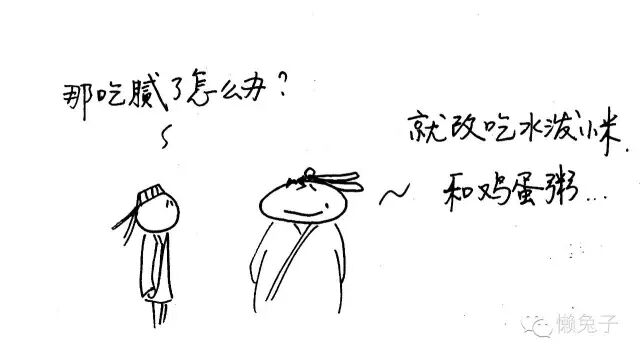 那吃腻了怎么办？
就改吃水泼小米.
和鸡蛋粥...
懒兔子